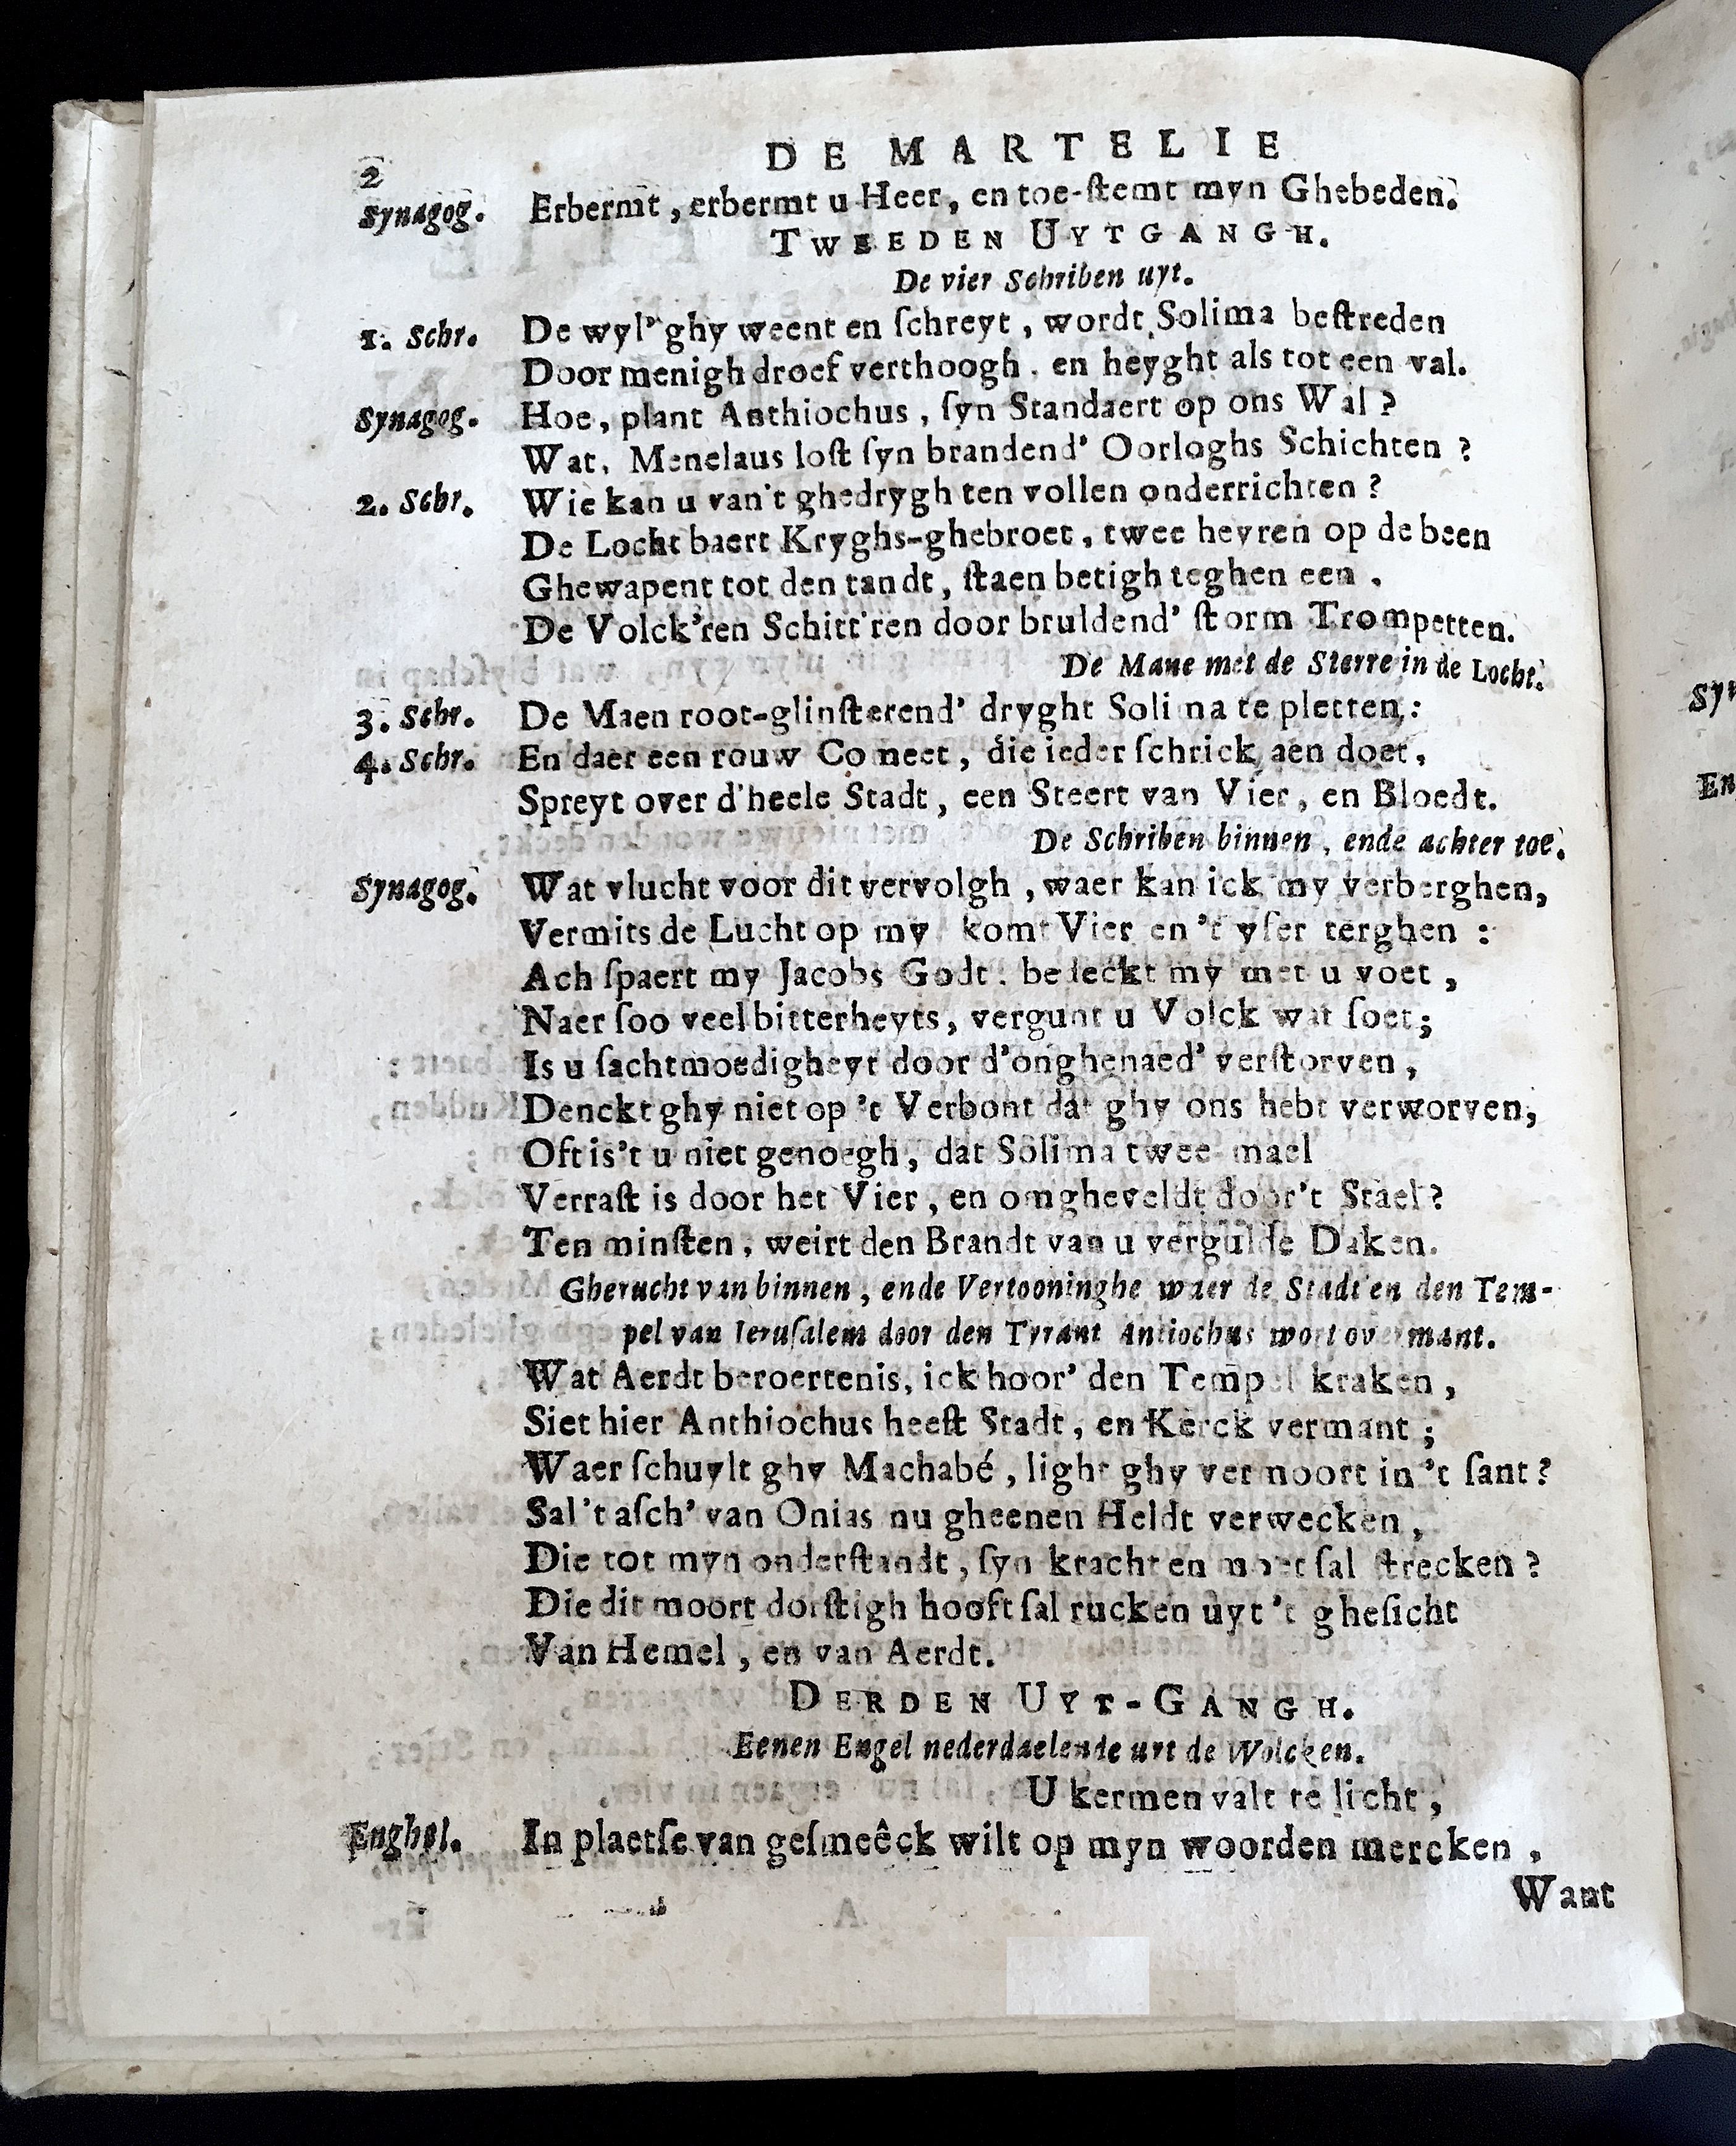 2
DE MARTELIE
Synagog. Erbermt, erbermt u Heer, en toe-ſtemt myn Ghebeden.
TWEEDEN UYTGANGH.
De vier Schriben uyt.
1. Schr. De wyl' ghy weent en ſchreyt, wordt Solima beſtreden
Door menigh droef verthoogh, en heyght als tot een val.
Synagog. Hoe, plant Anthiochus, ſyn Standaert op ons Wal?
Wat, Menelaus loſt ſyn brandend' Oorloghs Schichten?
2. Schr. Wie kan u van't ghedrygh ten vollen onderrichten?
De Locht baert Kryghs-ghebroet, twee heyren op de been
Ghewapent tot den tandt, ſtaen betigh teghen een.
De Volck'ren Schitt'ren door bruldend' ſtorm Trompetten.
De Mane met de Sterre in de Locht.
3. Schr. De Maen root-glinſterend' dryght Solima te pletten:
4. Schr. En daer een rouw Comeet, die ieder ſchrick aen doet,
Spreyt over d'heele Stadt, een Steert van Vier, en Bloedt.
De Schriben binnen, ende achter toe.
Synagog. Wat vlucht voor dit vervolgh, waer kan ick my verberghen,
Vermits de Lucht op my komt Vier en 't yſer terghen:
Ach ſpaert my Jacobs Godt. bedeckt my met u voet,
Naer ſoo veel bitterheyts, vergunt u Volck wat ſoet;
Is u ſachtmoedigheyt door d'onghenaed' verſtorven,
Denckt ghy niet op 't Verbont dat ghy ons hebt verworven,
Oft is't u niet genoegh, dat Solima twee mael
Verraſt is door het Vier, en omgheveldt door't Stael?
Ten minſten, weirt den Brandt van u vergulde Daken.
Gherucht van binnen, ende Vertooninghe waer de Stadt en den Tem-
pel van Ieruſalem door den Tyrant Antiochus wort overmant.
Wat Aerdt beroertenis, ick hoor' den Tempel kraken,
Siet hier Anthiochus heeft Stadt, en Kerck vermant;
Waer ſchuylt ghy Machabé, light ghy vermoort in 't ſant?
Sal 't aſch' van Onias nu gheenen Heldt verwecken,
Die tot myn onderſtandt, ſyn kracht en moet ſal ſtrecken?
Die dit moort dorſtigh hooft ſal rucken uyt 't gheſicht
Van Hemel, en van Aerdt.
DERDEN UYT-GANGH.
Eenen Engel nederdaelende uyt de Wolcken.
U kermen valt te licht,
Enghel. In plaetſe van geſmeêck wilt op myn woorden mercken,
Want
Syn
En